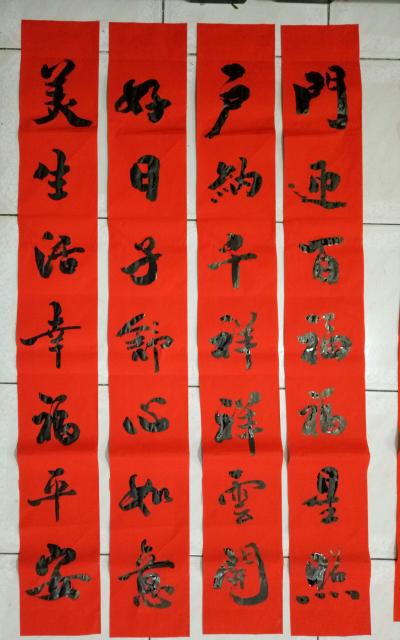 門迎百福福星照
户納千祥祥雲開
好日子舒心如意
美生活幸福平安